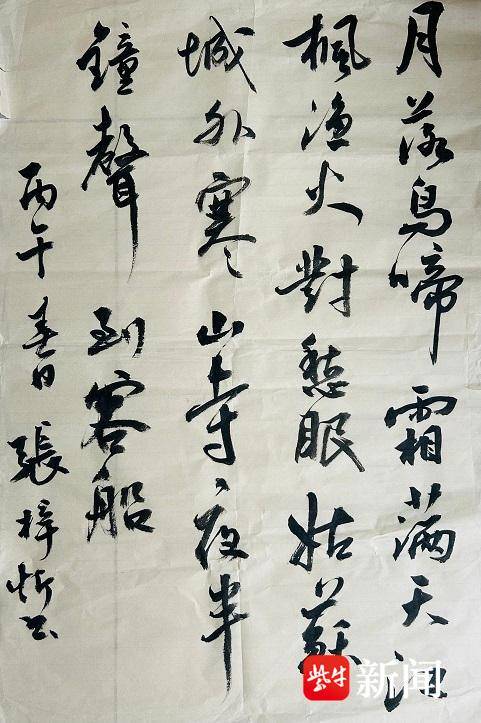 月落烏啼霜滿天江
楓渔火對愁眠姑蘇
城外寒山寺夜半
鐘聲到客船
丙午春日張梓忻书
紫牛新闻